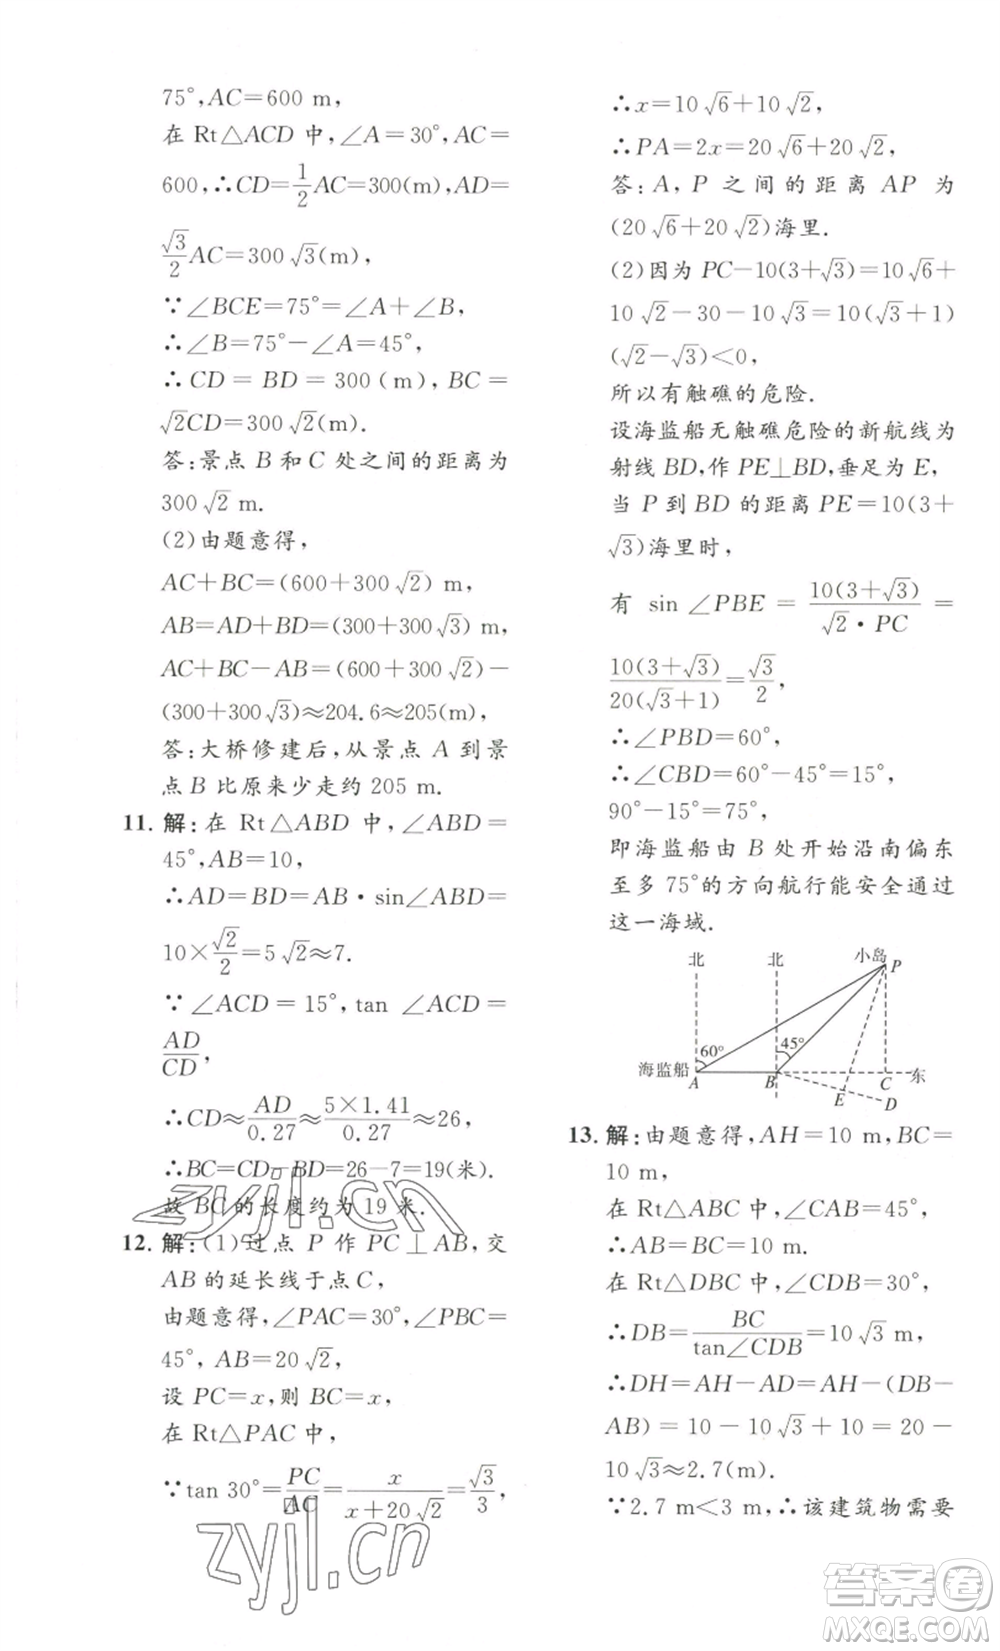 75°,AC=600 m,
在 Rt△ACD 中,∠A=30°,AC=
600,∴CD=1/2AC=300(m),AD=
√3/2AC=300√3(m),
∵∠BCE=75°=∠A+∠B,
∴∠B=75°-∠A=45°,
∴CD=BD=300(m),BC=
√2CD=300√2(m).
答:景点 B 和 C 处之间的距离为
300√2 m.
(2)由题意得,
AC+BC=(600+300√2) m,
AB=AD+BD=(300+300√3) m,
AC+BC-AB=(600+300√2)-
(300+300√3)≈204.6≈205(m),
答:大桥修建后,从景点 A 到景
点 B 比原来少走约 205 m.
11. 解:在 Rt△ABD 中,∠ABD=
45°,AB=10,
∴AD=BD=AB·sin∠ABD=
10×√2/2=5√2≈7.
∵∠ACD=15°,tan∠ACD=
AD/CD,
∴CD≈AD/0.27≈5×1.41/0.27≈26,
∴BC=CD-BD=26-7=19(米).
故 BC 的长度约为 19 米.
12. 解:(1)过点 P 作 PC⊥AB,交
AB 的延长线于点 C,
由题意得,∠PAC=30°,∠PBC=
45°,AB=20√2,
设 PC=x,则 BC=x,
在 Rt△PAC 中,
∵tan 30°=PC/AC=x/(x+20√2)=√3/3,
∴x=10√6+10√2,
∴PA=2x=20√6+20√2,
答:A,P 之间的距离 AP 为
(20√6+20√2)海里.
(2)因为 PC-10(3+√3)=10√6+
10√2-30-10√3=10(√3+1)
(√2-√3)<0,
所以有触礁的危险.
设海监船无触礁危险的新航线为
射线 BD,作 PE⊥BD,垂足为 E,
当 P 到 BD 的距离 PE=10(3+
√3)海里时,
有 sin∠PBE=10(3+√3)/(√2·PC)=
10(3+√3)/20(√3+1)=√3/2,
∴∠PBD=60°,
∴∠CBD=60°-45°=15°,
90°-15°=75°,
即海监船由 B 处开始沿南偏东
至多 75°的方向航行能安全通过
这一海域.
北 北 小岛 P
60° 45°
海监船 A B C 东
E D
13. 解:由题意得,AH=10 m,BC=
10 m,
在 Rt△ABC 中,∠CAB=45°,
∴AB=BC=10 m.
在 Rt△DBC 中,∠CDB=30°,
∴DB=BC/tan∠CDB=10√3 m,
∴DH=AH-AD=AH-(DB-
AB)=10-10√3+10=20-
10√3≈2.7(m).
∵2.7 m<3 m,∴该建筑物需要
zyjl.cn
zyjl.cn
答案圈
MXQE.COM